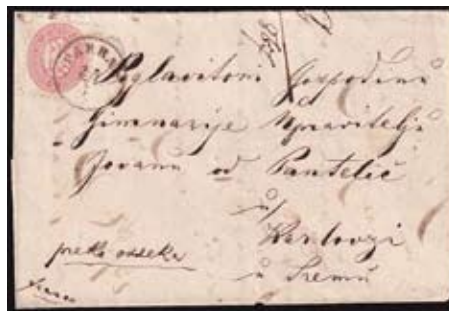 Gospodinu
Gimnazije Upravitelju
Jovanu od Pantelić
u
Karlovzi
u Sremu
preko osseka
franco